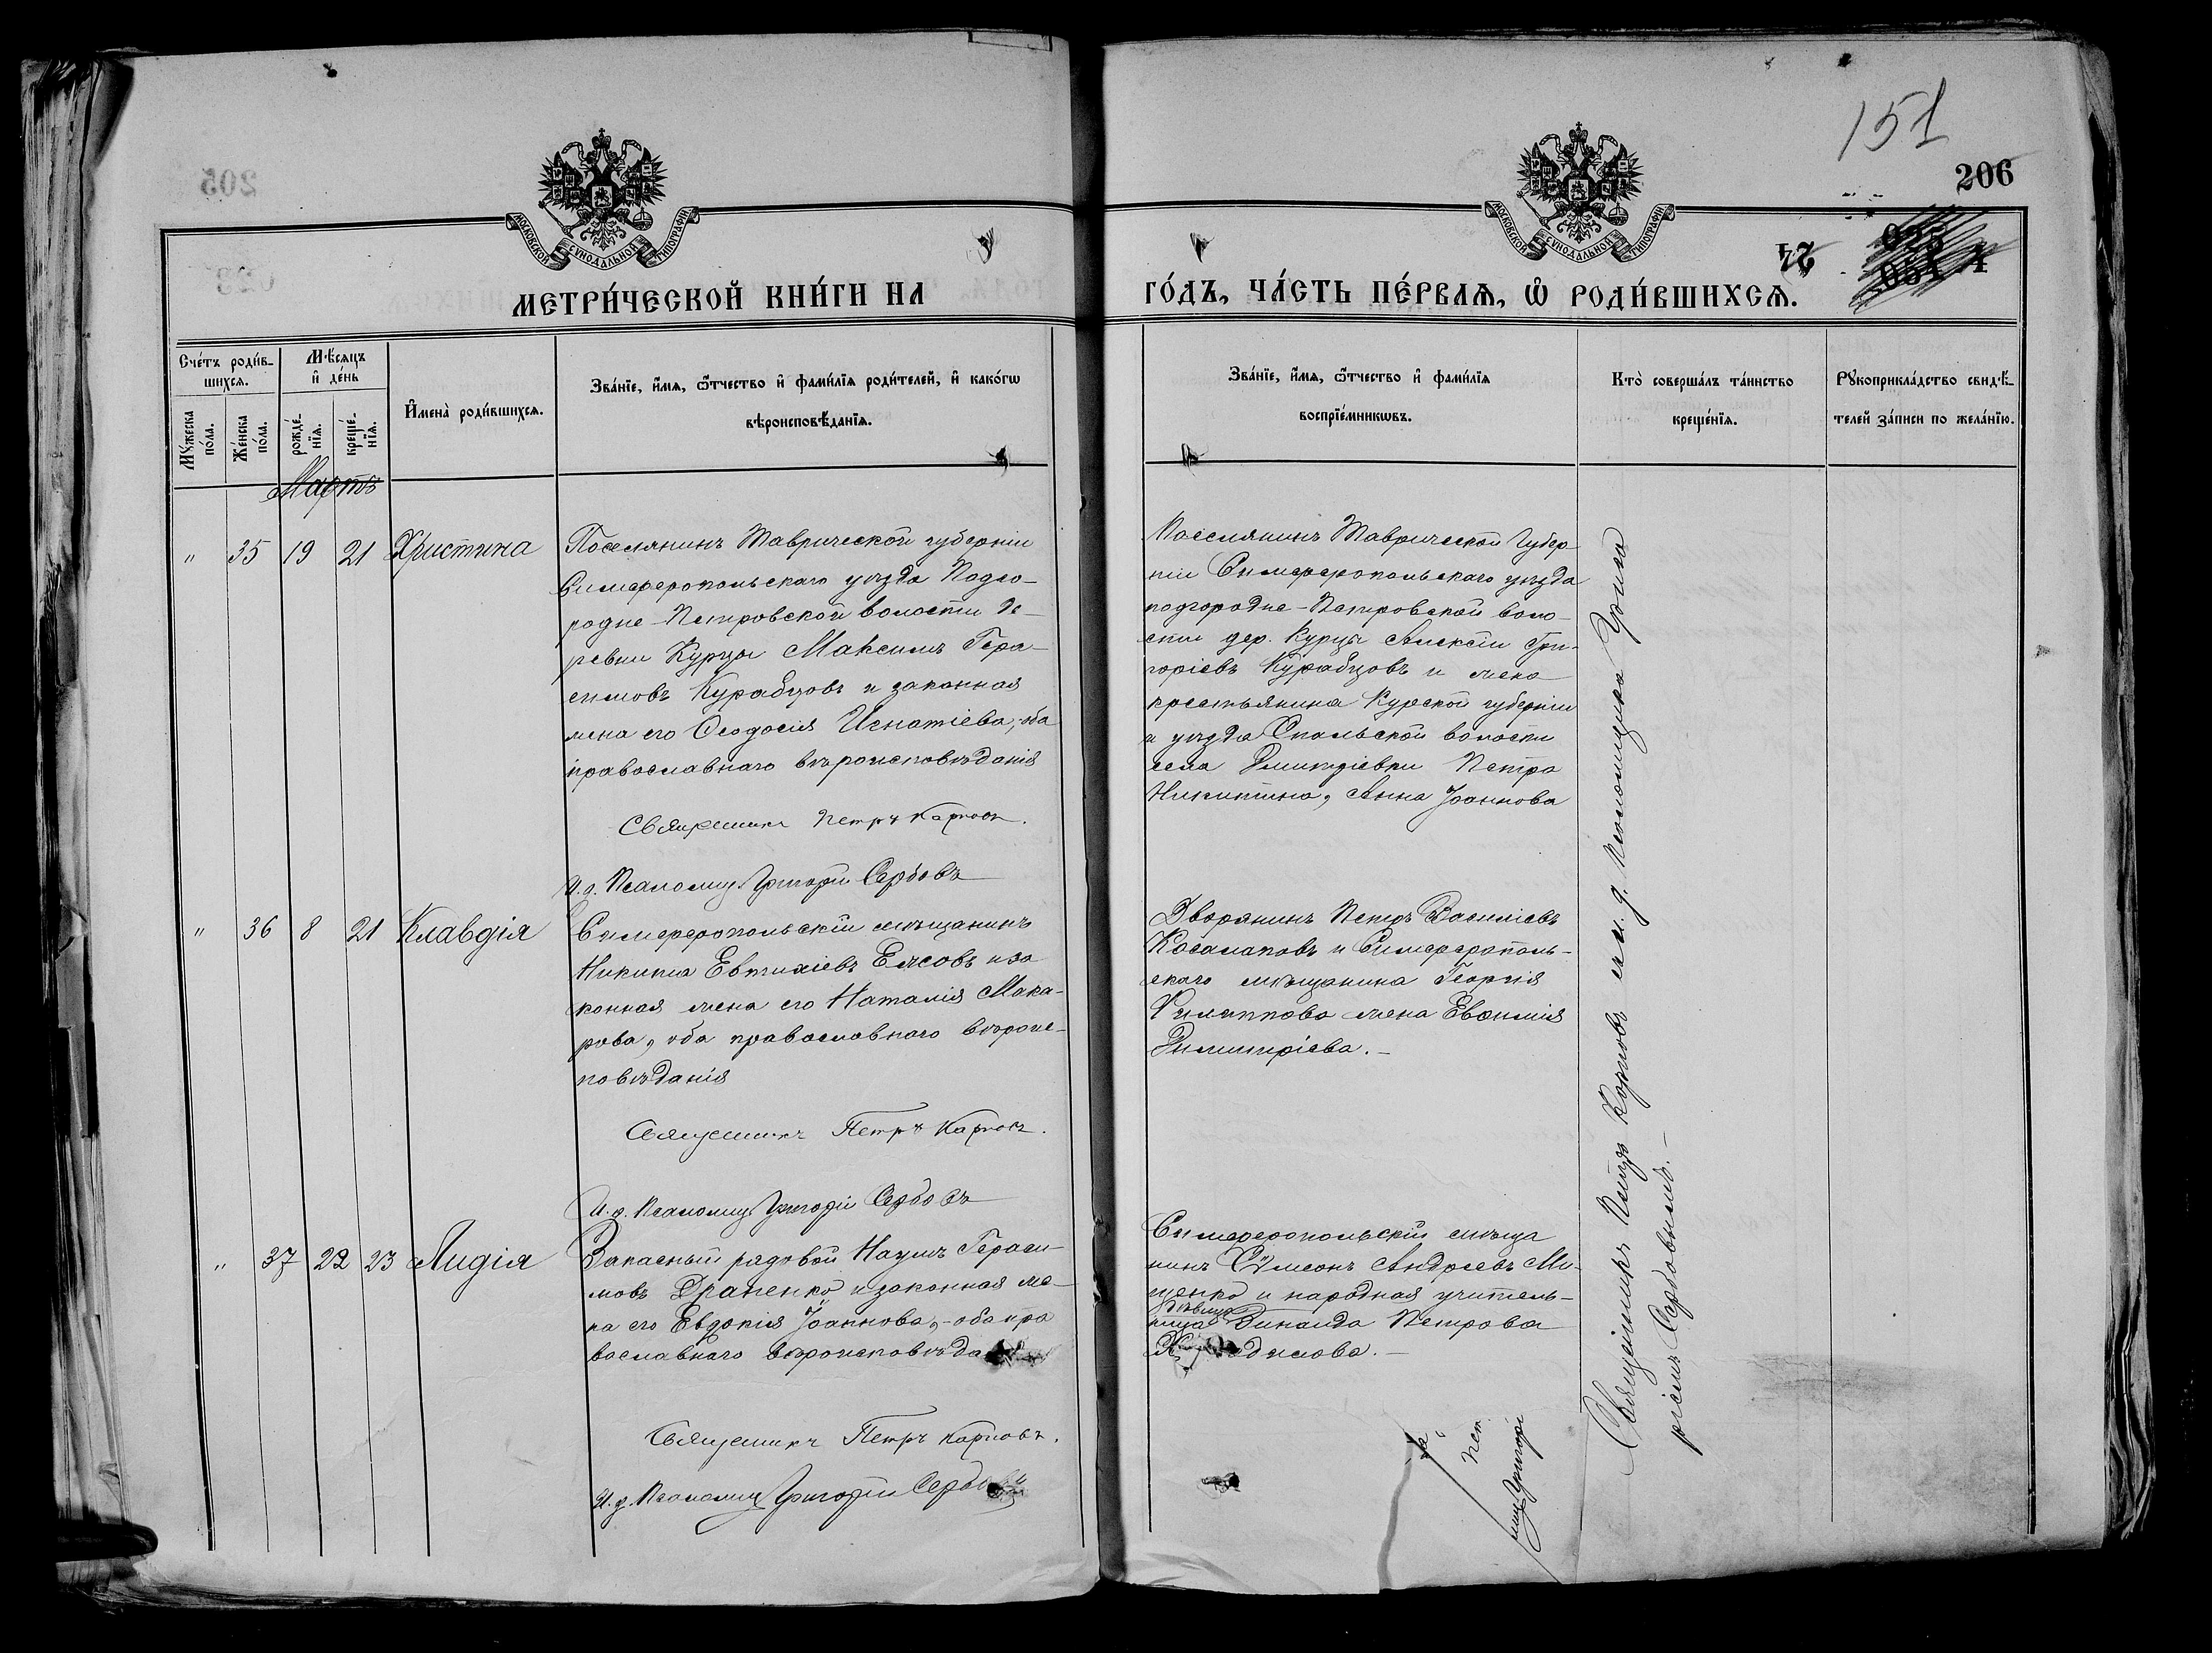 151
206
205
24
МОСКОВСКОЙ СѴНОДАЛЬНОЙ ТИПОГРАФІИ
МОСКОВСКОЙ СѴНОДАЛЬНОЙ ТИПОГРАФІИ
МЕТРИ́ЧЕСКОЙ КНИ́ГИ НА
ГО́ДЪ, ЧА́СТЬ ПЕ́РВАЯ, Ѿ РОДИ́ВШИХСЯ.
Сче́тъ роди́в-
шихся.
Мѣ́сяцъ
и҆ де́нь
Мꙋ́жеска
по́ла.
Же́нска
по́ла.
рожде́-
нїя.
креще́-
нїя.
И҆мена̀ роди́вшихся.
Зва́нїе, и҆́мя, ѻ҆́тчество и҆ фами́лїя роди́телей, и҆ како́гѡ
вѣроисповѣ́данїя.
Зва́нїе, и҆́мя, ѻ҆́тчество и҆ фами́лїя
воспрїе́мникѡвъ.
Кто̀ соверша́лъ та́инство
креще́нїя.
Рꙋкоприкла́дство свидѣ́-
телей за́писи по жела́нїю.
Мартъ
" 35 19 21 Христина
Поселянинъ Таврической губерніи
Симферопольскаго уѣзда Подго-
родне-Петровской волости де-
ревни Курцы Максимъ Гера-
симовъ Курабцовъ и законная
жена его Ѳеодосія Игнатіева, оба
православнаго вѣроисповѣданія
Священникъ Петръ Карповъ.
И. д. Псаломщ. Григорій Сербовъ
Поселянинъ Таврической Губер-
ніи Симферопольскаго уѣзда
подгородне-Петровской воло-
сти дер. Курцы Алексій Гри-
горіевъ Курабцовъ и жена
крестьянина Курской губерніи
и уѣзда Спольской волости
села Дмитріевки Петра
Никитина, Анна Іоаннова
" 36 8 21 Клавдія
Симферопольскій мѣщанинъ
Никита Евтихіевъ Елсовъ и за
конная жена его Наталія Мака-
рова, оба православнаго вѣроис-
повѣданія
Священникъ Петръ Карповъ.
И. д. Псаломщ. Григорій Сербовъ
Дворянинъ Петръ Василіевъ
Косолаповъ и Симферополь-
скаго мѣщанина Георгія
Филиппова жена Евѳимія
Димитріева.-
" 37 22 23 Лидія
Запасный рядовой Наумъ Гераси-
мовъ Драненко и законная же-
на его Евдокія Іоаннова,-оба пра
вославнаго вѣроисповѣда
Священникъ Петръ Карповъ.
И. д. Псаломщ. Григорій Сербовъ
Симферопольскій мѣща
нинъ Сѵмеонъ Андреевъ Ми-
щенко и народная учитель-
дѣвица
ница Зинаида Петрова
Священникъ Петръ Карповъ съ и. д. Псаломщика Григо
ріемъ Сербовымъ.-
Пет
мщ. Григорі